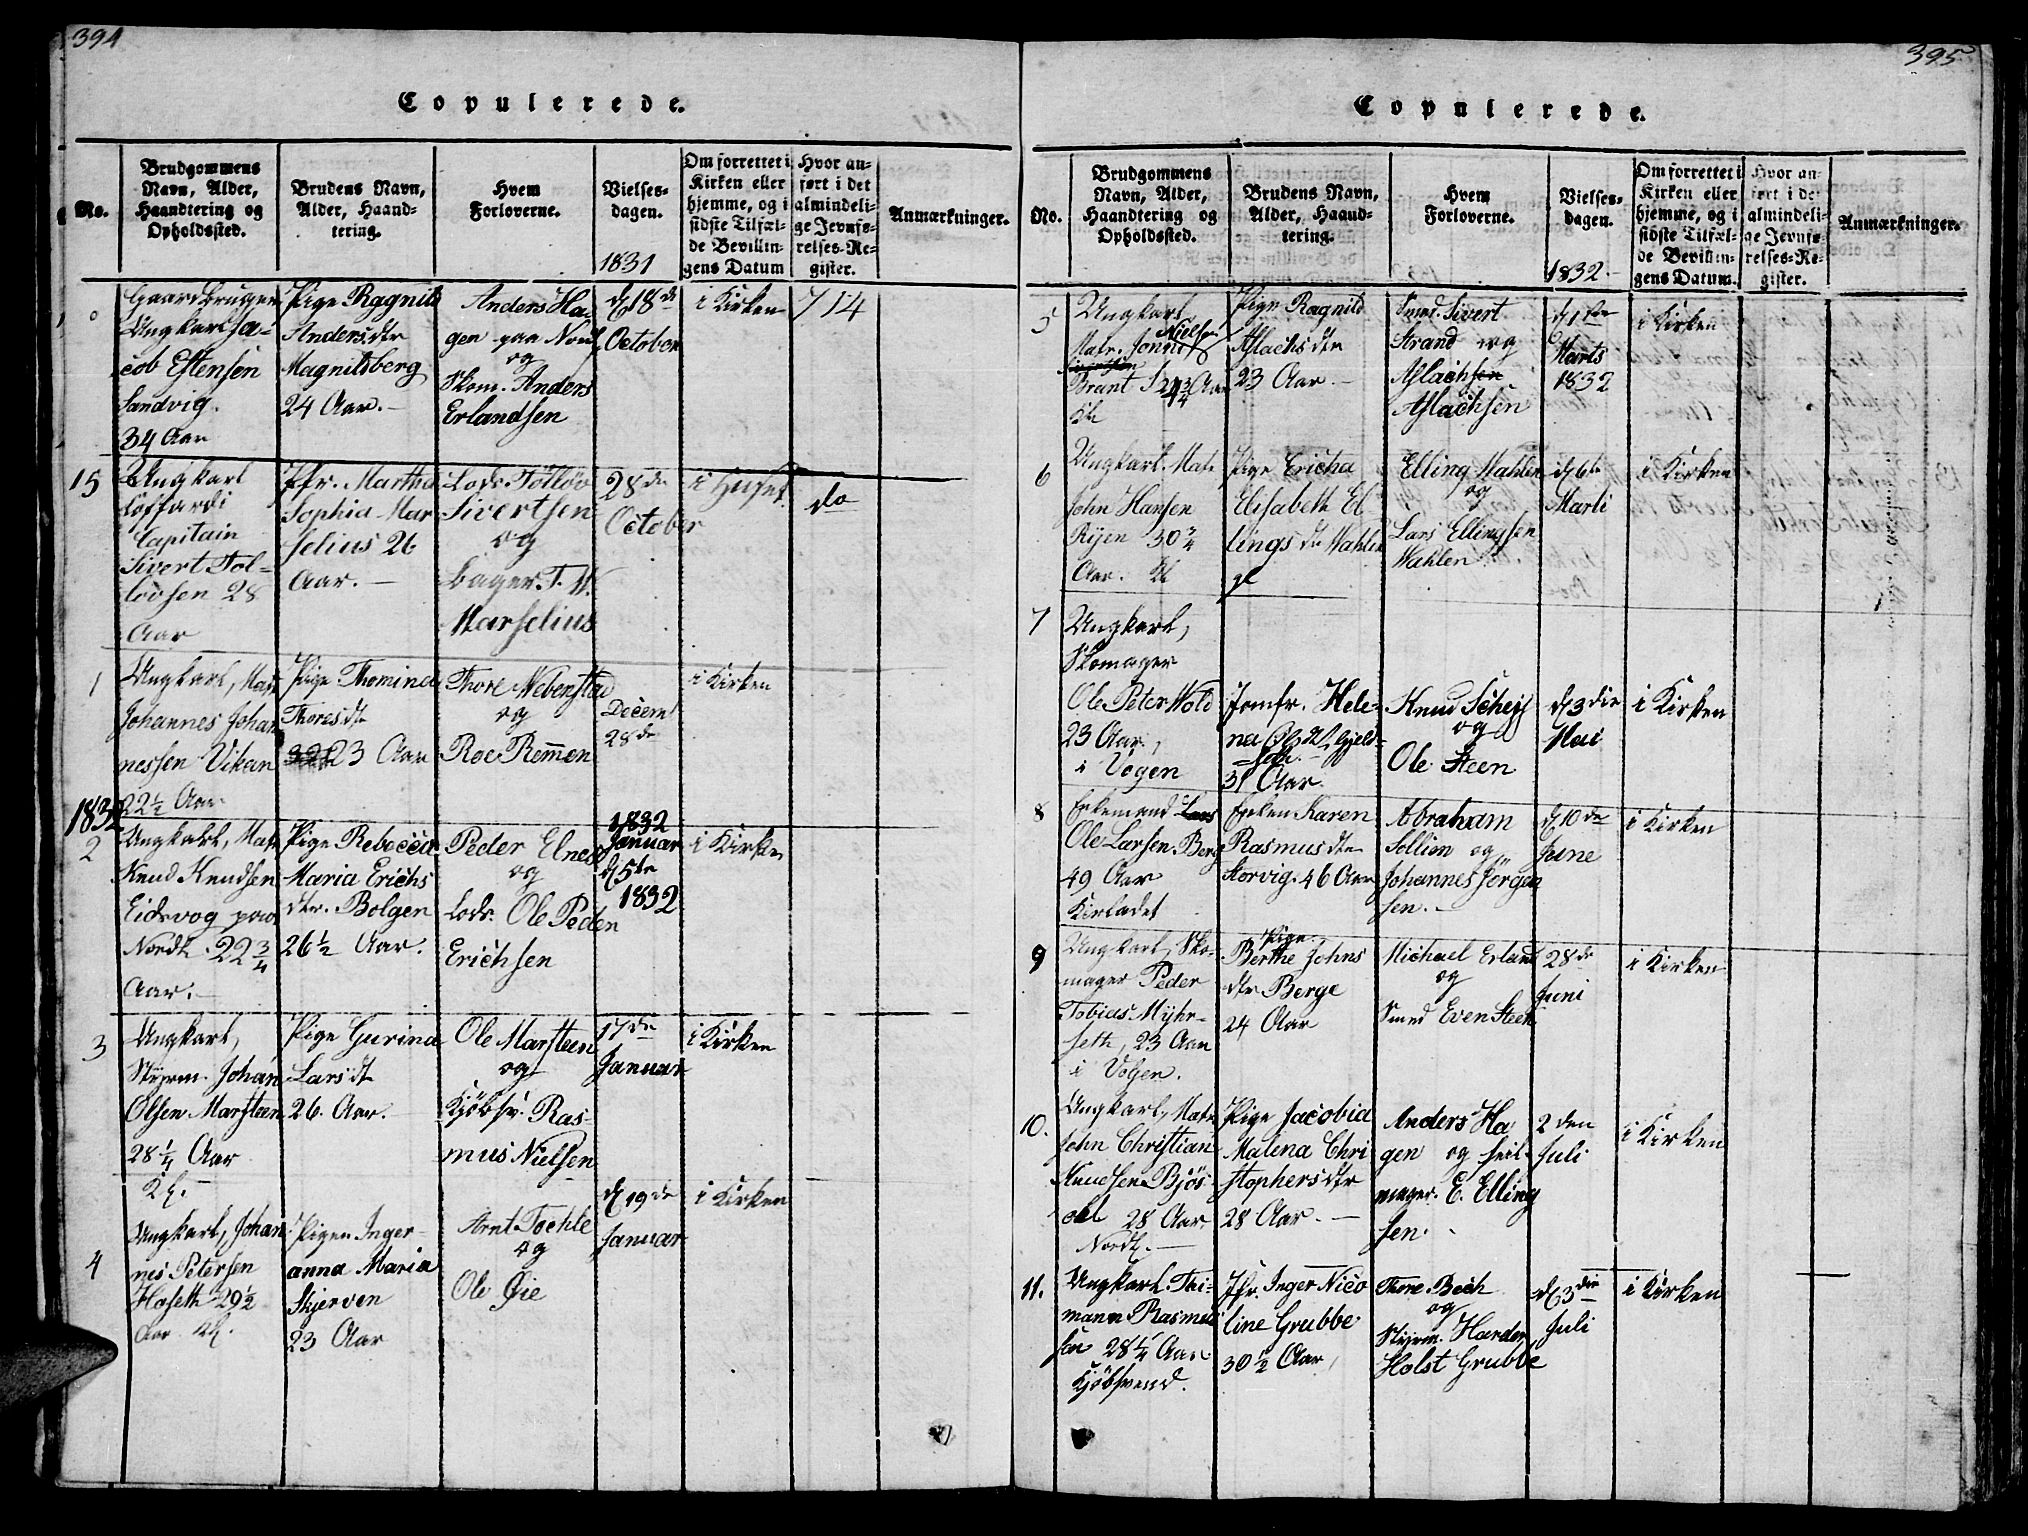 394
Copulerede.
No.
Brudgommens
Navn, Alder,
Haandtering og
Opholdssted.
Brudens Navn,
Alder, Haand-
tering.
Hvem
Forloverne.
Vielses-
dagen.
1831
Om forrettet i
Kirken eller
hjemme, og i
sidste Tilfæl-
de Bevillin-
gens Datum
Hvor an-
ført i det
almindeli-
ge Jevnfø-
relses-Re-
gister.
Anmærkninger.
Gaardbruger
Ungkarl Ja-
cob Estensen
Sandvig.
34 Aar
Pige Ragnild
Anders.dtr
Magnildsberg
24 Aar.-
Anders Ha-
gen paa
og
Skom. Anders
Erlandsen
d 18de
October
i Kirken
714
15
Ungkarl
Coffardi
Capitain
Sivert Tol-
lovsen 28
Aar
Jfr. Martha
Sophia Mar
selius 26
Aar.-
Lods Tolløv
Sivertsen
og
Bager T. W.
Marselius
28de
October
i Huset
do
1
Ungkarl, Matr
Johannes Johan
nessen Vikan
22½ Aar
Pige Thomine
Thoresdtr
23 Aar
Thore Nebenstad
og
Roe Remmen
Decem
28de
i Kirken
1832
2
Ungkarl, Matr
Knud Knudsen
Eidsvog paa
Nordl. 22¾
Aar.-
Pige Rebecca
Maria Erichs
dtr. Bolgen
26½ Aar.
Peder Elnes
og
Lods. Ole Peder
Erichsen
1832
Januar
d 5te
1832
i Kirken
3
Ungkarl,
Styrm. Johan
Olsen Marsteen
28¼ Aar
Pige Gurina
Larsdtr
26. Aar.
Ole Marsteen
og
Kjøbsv. Ras-
mus Nielsen
17de
Januar
i Kirken
4
Ungkarl, Johan
nes Petersen
Haseth 29½
Aar
Pigen Inger-
anna Maria
Skjerven
23 Aar
Arnt Tochle
og
Ole Øie
d 19de
Januar
i Kirken
395
Copulerede.
No.
Brudgommens
Navn, Alder,
Haandtering og
Opholdssted.
Brudens Navn,
Alder, Haand-
tering.
Hvem
Forloverne.
Vielses-
dagen.
1832
Om forrettet i
Kirken eller
hjemme, og i
sidste Tilfæl-
de Bevillin-
gens Datum.
Hvor an-
ført i det
almindeli-
ge Jevnfø-
relses-Re-
gister.
Anmærkninger.
5
Ungkarl
Nielsen
Matr.
Brant 24¾ Aar
Pige Ragnild
Aslachsdtr
23 Aar.-
Smed. Sivert
Strand og
Aslachsen
Aslachsen
d 1ste
Marts
1832
i Kirken
6
Ungkarl. Matr
John Hansen
Rijen 30¾
Aar.
Pige Ericha
Elisabeth El
lingsdtr Mahlen
Elling Mahlen
og
Lars Ellingsen
Mæhlen
d 6te
Marti
i Kirken
7
Ungkarl,
Skomager
Ole Peter Wold
23 Aar,
i Vogen
Jomfr. Hele-
na
31 Aar.
Knud Scheij
og
Ole Steen
d 3die
Mai
i Kirken
8
Enkemand Lars
Ole Larsen Berg
49 Aar
Enken Karen
Rasmusdtr
Storvig. 46 Aar
Abraham
Sollien og
Johannes Jørgen
sen.-
d 10de
June
i Kirken
9
Ungkarl, Sko-
mager Peder
Tobias Myhr-
seth, 23 Aar
i Volgen.
Pige
Berthe Johns
dtr Berge
24 Aar
Michael Erland
og
Smed Even Steen
28de
Juni
i Kirken
10.
Ungkarl, Matr
John Christian
Knudsen Bjøs
28 Aar
Nordl.-
Pige Jacobia
Malena Chri
stophersdtr
28 Aar.-
Anders Ha
gen og Seil
mager. E. Elling
sen.
2 den
Juli
i Kirken
11.
Ungkarl Thi-
mann Rasmus
sen 28¼ Aar
Kjøbsvend.
Jfr. Inger Nico
line Grubbe
30½ Aar,
Thore Bech
og
Styrm. Harder
Holst Grubbe
d 3die
Juli
i Kirken